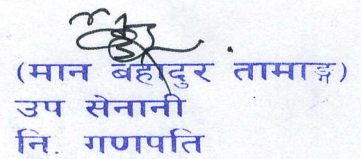 (मान बहादुर तामाङ्ग)
उप सेनानी
नि. गणपति